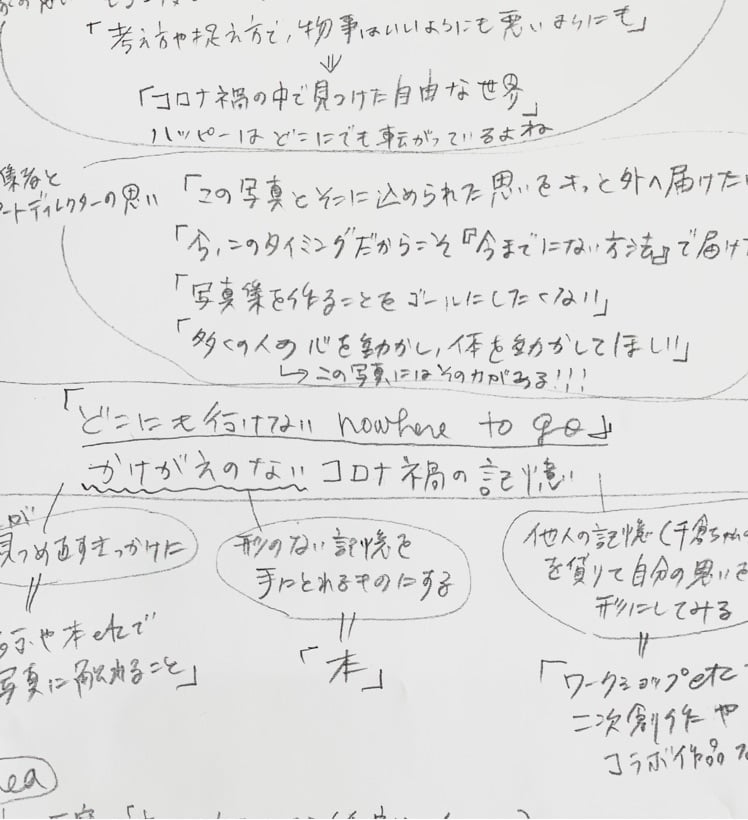 「考え方や捉え方で、物事はいいようにも悪いようにも」
「コロナ禍の中で見つけた自由な世界」
ハッピーはどこにでも転がっているよね
集者と
ートディレクターの思い
「この写真とそこに込められた思いをもっと外へ届けたい
「今、このタイミングだからこそ『今までにない方法』で届け
「写真集を作ることをゴールにしたくない」
「多くの人の心を動かし、体を動かしてほしい」
↳この写真にはその力がある!!!
「どこにも行けない nowhere to go」
かけがえのないコロナ禍の記憶
が
見つめ直すきっかけに
形のない記憶を
手にとれるものにする
他人の記憶(千倉ちゃんの
を借りて自分の思いを
形にしてみる
示や本etcで
写真に触れること」
「本」
「ワークショップetc
二次創作や
コラボ作品
ea